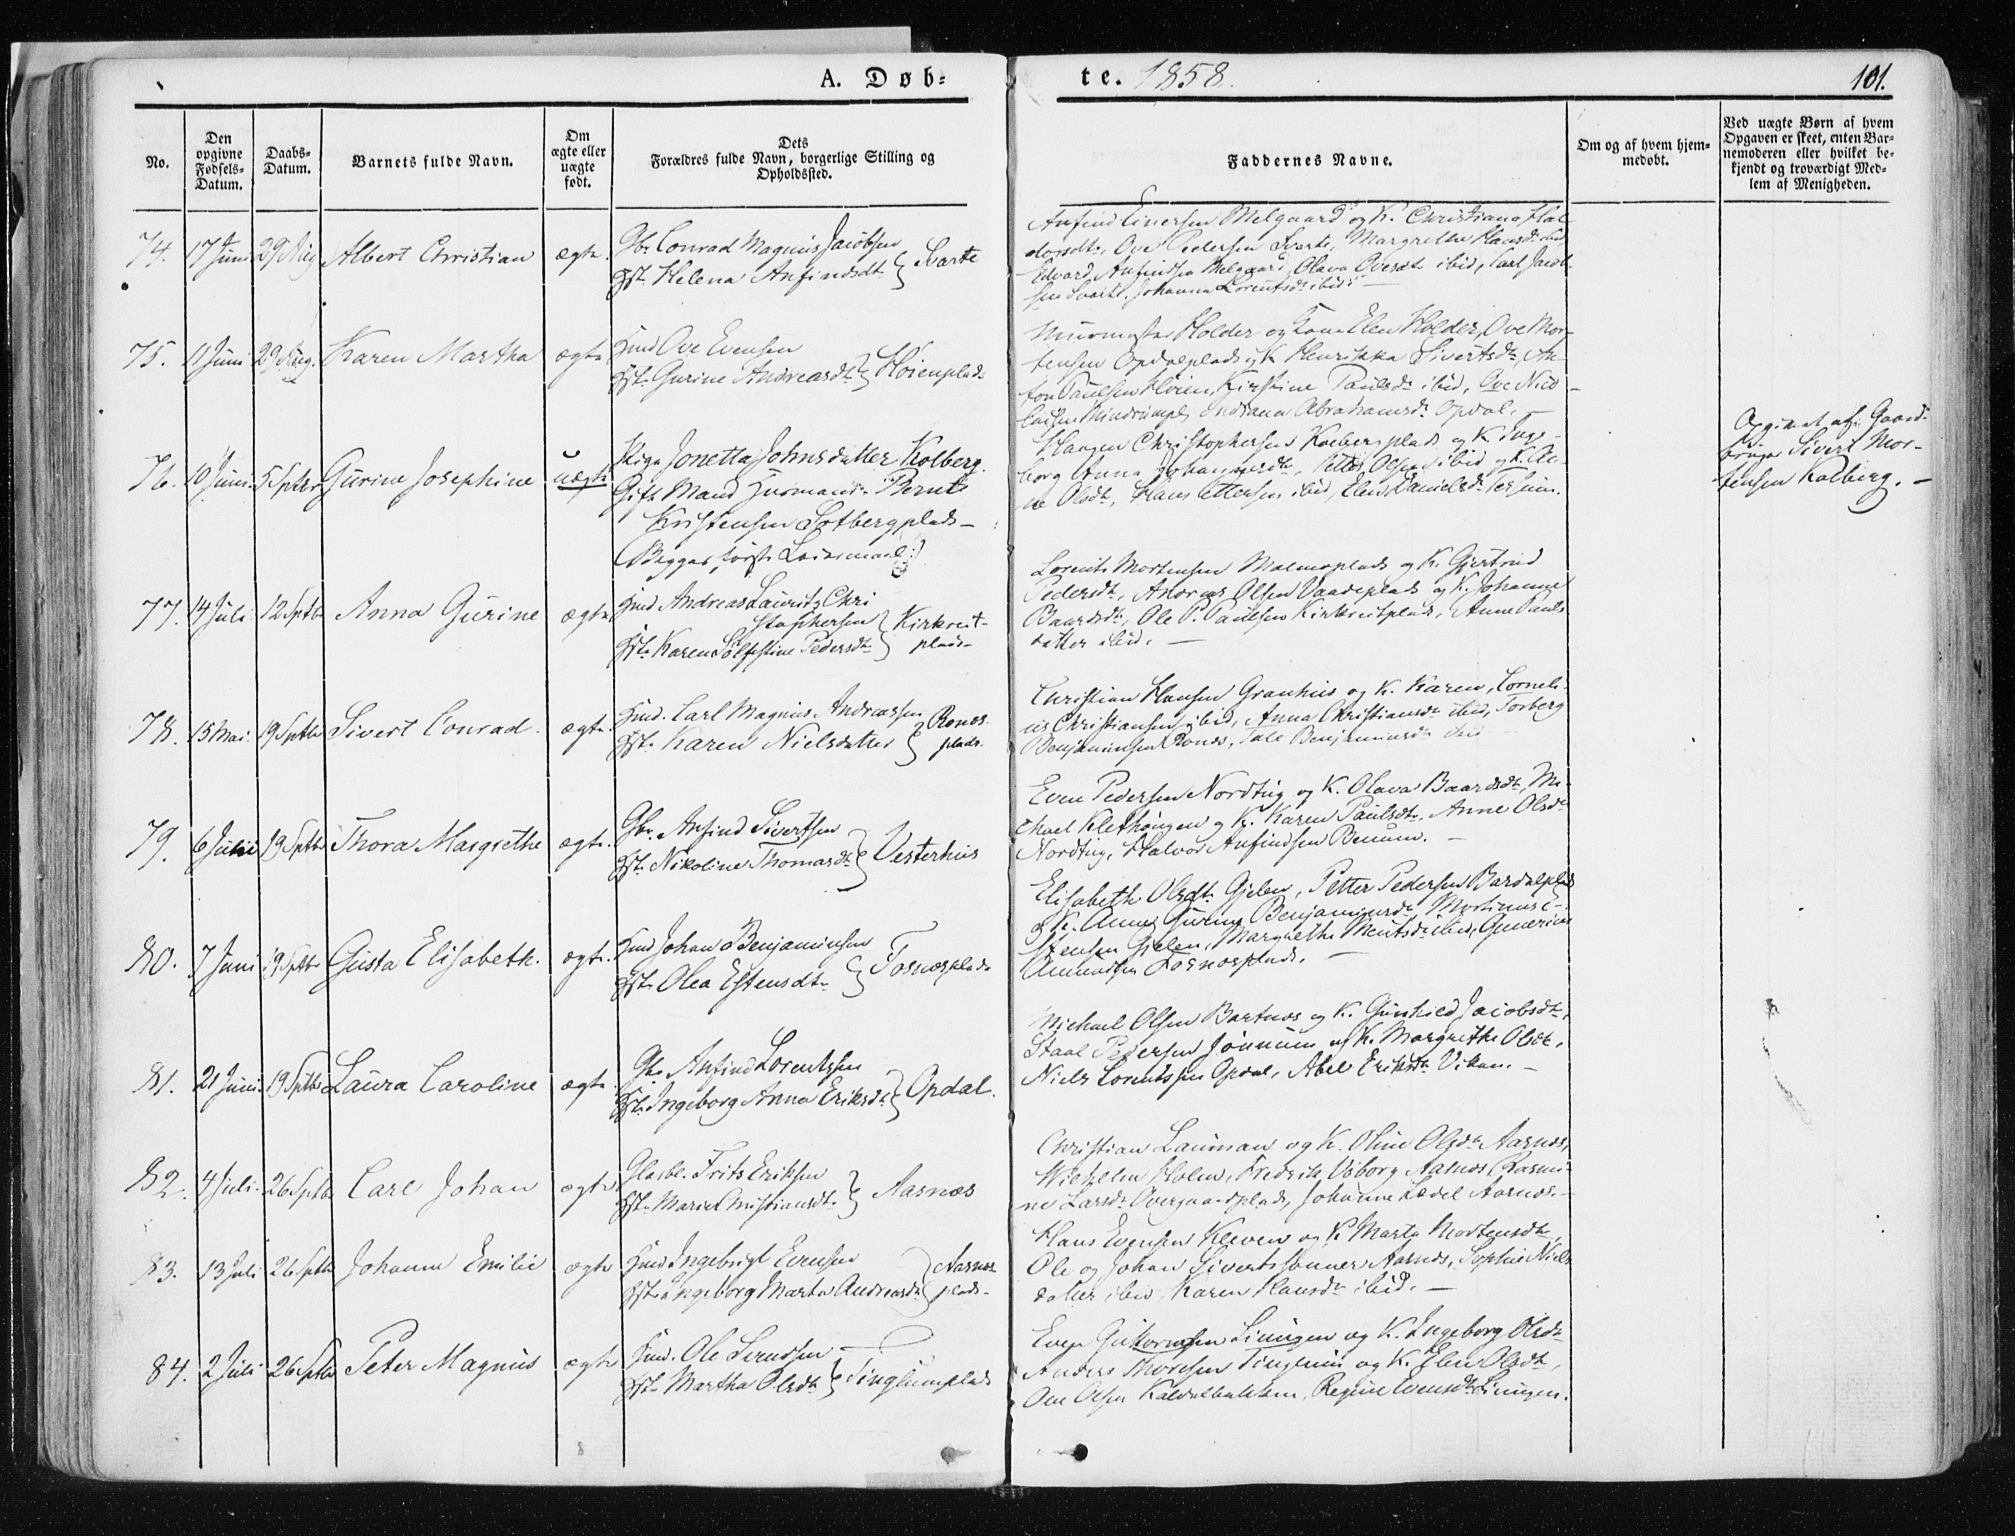 A. Døb-
te. 1858.
101.
No.
Den opgivne Fødsels-Datum.
Daabs-Datum.
Barnets fulde Navn.
Om ægte eller uægte født.
Dets Forældres fulde Navn, borgerlige Stilling og Opholdssted.
Faddernes Navne.
Om og af hvem hjemmedøbt.
Ved uægte Børn af hvem Opgaven er skeet, enten Barnemoderen eller hvilket bekjendt og troværdigt Medlem af Menigheden.
74. 17 Juni 29 Aug Albert Christian ægte
Gbr. Conrad Magnus Jacobsen
Hst. Helena Anfindsdt. } Svarte
Anfind Einersen Melgaard og K. Christiana Hal-
dorsdt., Ove Pedersen Svarte, Margrethe Hansdt. ibid
Edvard Anfindsen Melgaard, Olava Ovesdt. ibid, Carl Jacob-
sen Svarte, Johanna Lorentsdt. ibid. —
75. 11 Juni 29 Aug. Karen Martha ægte
Hmd Ove Evensen
Hst. Gurine Andreasdt. } Høienplads
Muurmester Holder og Kone Elen Holder, Ove Mor-
tensen Opdalplads og K. Henrikka Sivertsdt., An-
ton Paulsen Høien, Kirstine Paulsdt. ibid, Ove Nico-
laisen, Indiana Abrahamsdt. Opdal. —
76. 10 Juni 5 Sptbr Gurine Josephine uægte
Pige Jonetta Johnsdatter Kolberg.
Gift Mand Huusmand Bernt
Kristensen Solbergplads —
(Begges første Leiermaal)
Haagen Christophersen Kolbergplads og K. Inge-
borg Anna Johannesdt., Petter Olsen ibid og K.
Olsdt., Hans Pettersen ibid, Elen Danielsdt.
Opgivet af Gaard-
bruger Sivert Mor-
tensen Kolberg. —
77. 14 Juli 12 Sptbr Anna Gurine ægte
Hmd Andreas Lauritz Chri
stophersen
Hst. Karen Sølfestine Pedersdt. } Kirkreit-
plads
Lorents Mortensen Malmoplads og K. Gjertrud
Pedersdt., Andreas Olsen Vaadeplads og K. Johanna
Baardsdt., Ole P. Paulsen Kirkreitplads, Anne Pauls-
datter ibid. —
78. 15 Mai 19 Sptbr Sivert Conrad. ægte
Hmd. Carl Magnus Andreassen
Hst. Karen Nielsdatter } Ronæs
plads.
Christian Hansen Granhus og K. Karen, Corneli-
us Christiansen ibid, Anna Christiansdt. ibid, Torberg
Benjaminsen Ronæs, Tale Benjaminsdt. ibid —
79. 6 Juni 19 Sptbr Thora Margrethe ægte.
Gbr. Anfind Sivertsen
Hst. Nikoline Thomasdt. } Vesterhus
Even Pedersen Nordtug og K. Olava Baardsdt., Mi-
chael Klethaugen og K. Karen Paulsdt., Anne Olsdt.
Nordtug, Halvor Anfindsen Benum. —
80. 7 Juni 19 Sptbr Gusta Elisabeth. ægte.
Hmd Johan Benjaminsen
Hst. Olea Estensdt. } Fosnæsplads
Elisabeth Olsdt. Gjelen, Petter Pedersen Bardalplads
og K. Anne Gurine Benjaminsdt., Martinus E-
stensen Gjelen, Margrethe ibid, Gunerius
Amundsen Fosnæsplads. —
81. 21 Juni 19 Sptbr Laura Caroline ægte
Gbr. Anfind Lorentssen
Hst. Ingeborg Anna Eriksdt. } Opdal.
Michael Olsen Bartnæs og K. Gunhild Jacobsdt.,
Staal Pedersen Jønnum og K. Margrethe Olsdt.,
Niels Lorentssen Opdal, Abel Eriksdt. Vikan. —
82. 4 Juli 26 Sptbr Carl Johan ægte
Glasbl. Frits Eriksen
Hst. Maria Christiansdt. } Aasnæs
Christian Lauman og K. Oline Olsdt. Aasnæs,
Wilhelm Holm, Fredrik Viborg Aasnæs, Rasmi-
ne Larsdt. Overgaardplads, Johanne Ledel Aasnæs. —
83. 13 Juli 26 Sptbr Johanne Emilie ægte
Hmd Ingebrigt Evensen
Hst. Ingeborg Marta Andreasdt. } Aasnæs
plads.
Hans Evensen Kleven og K. Marta Mortensdt.,
Ole og Johan Sivertssønner Aasnæs, Sophie Niels
datter ibid, Karen Hansdt. ibid. —
84. 2 Juli 26 Sptbr Peter Magnus ægte
Hmd. Ole Svendsen —
Hst. Martha Olsdt. } Tinglumplads
Even Guttormsen Simigen og K. Ingeborg Olsdt.
Anders Thoresen Tinglum og K. Elen Olsdt.,
Ove Olsen Kaldalbakken, Regine Evensdt. Simigen.